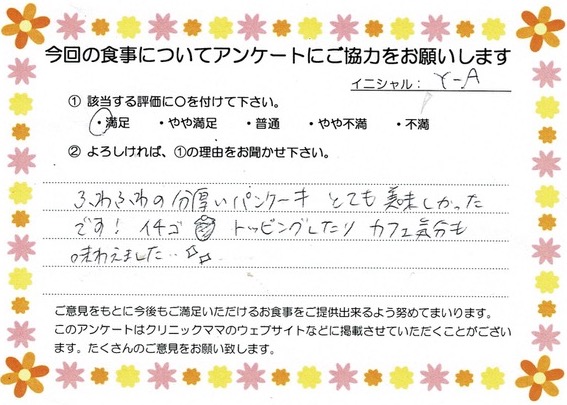 今回の食事についてアンケートにご協力をお願いします
イニシャル: Y-A
① 該当する評価に○を付けて下さい。
・満足 ・やや満足 ・普通 ・やや不満 ・不満
② よろしければ、①の理由をお聞かせ下さい。
ふわふわの分厚いパンケーキ とても美味しかった
です! イチゴ トッピングしたり カフェ気分も
味わえました…
ご意見をもとに今後もご満足いただけるお食事をご提供出来るよう努めてまいります。
このアンケートはクリニックママのウェブサイトなどに掲載させていただくことがござい
ます。たくさんのご意見をお願い致します。